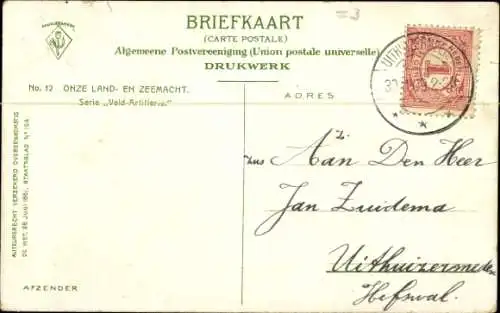 BRIEFKAART
(CARTE POSTALE)
Algemeene Postvereeniging (Union postale universelle)
DRUKWERK
No. 12 ONZE LAND- EN ZEEMACHT.
Serie „Veld-Artillerie."
ADRES
=3
1
Aan Den Heer
Jan Zuidema
Uithuizermeden
Hefswal.
AUTEURSRECHT VERZEKERD OVEREENKOMSTIG
DE WET 28 JUNI 1881, STAATSBLAD Nº 124
AFZENDER